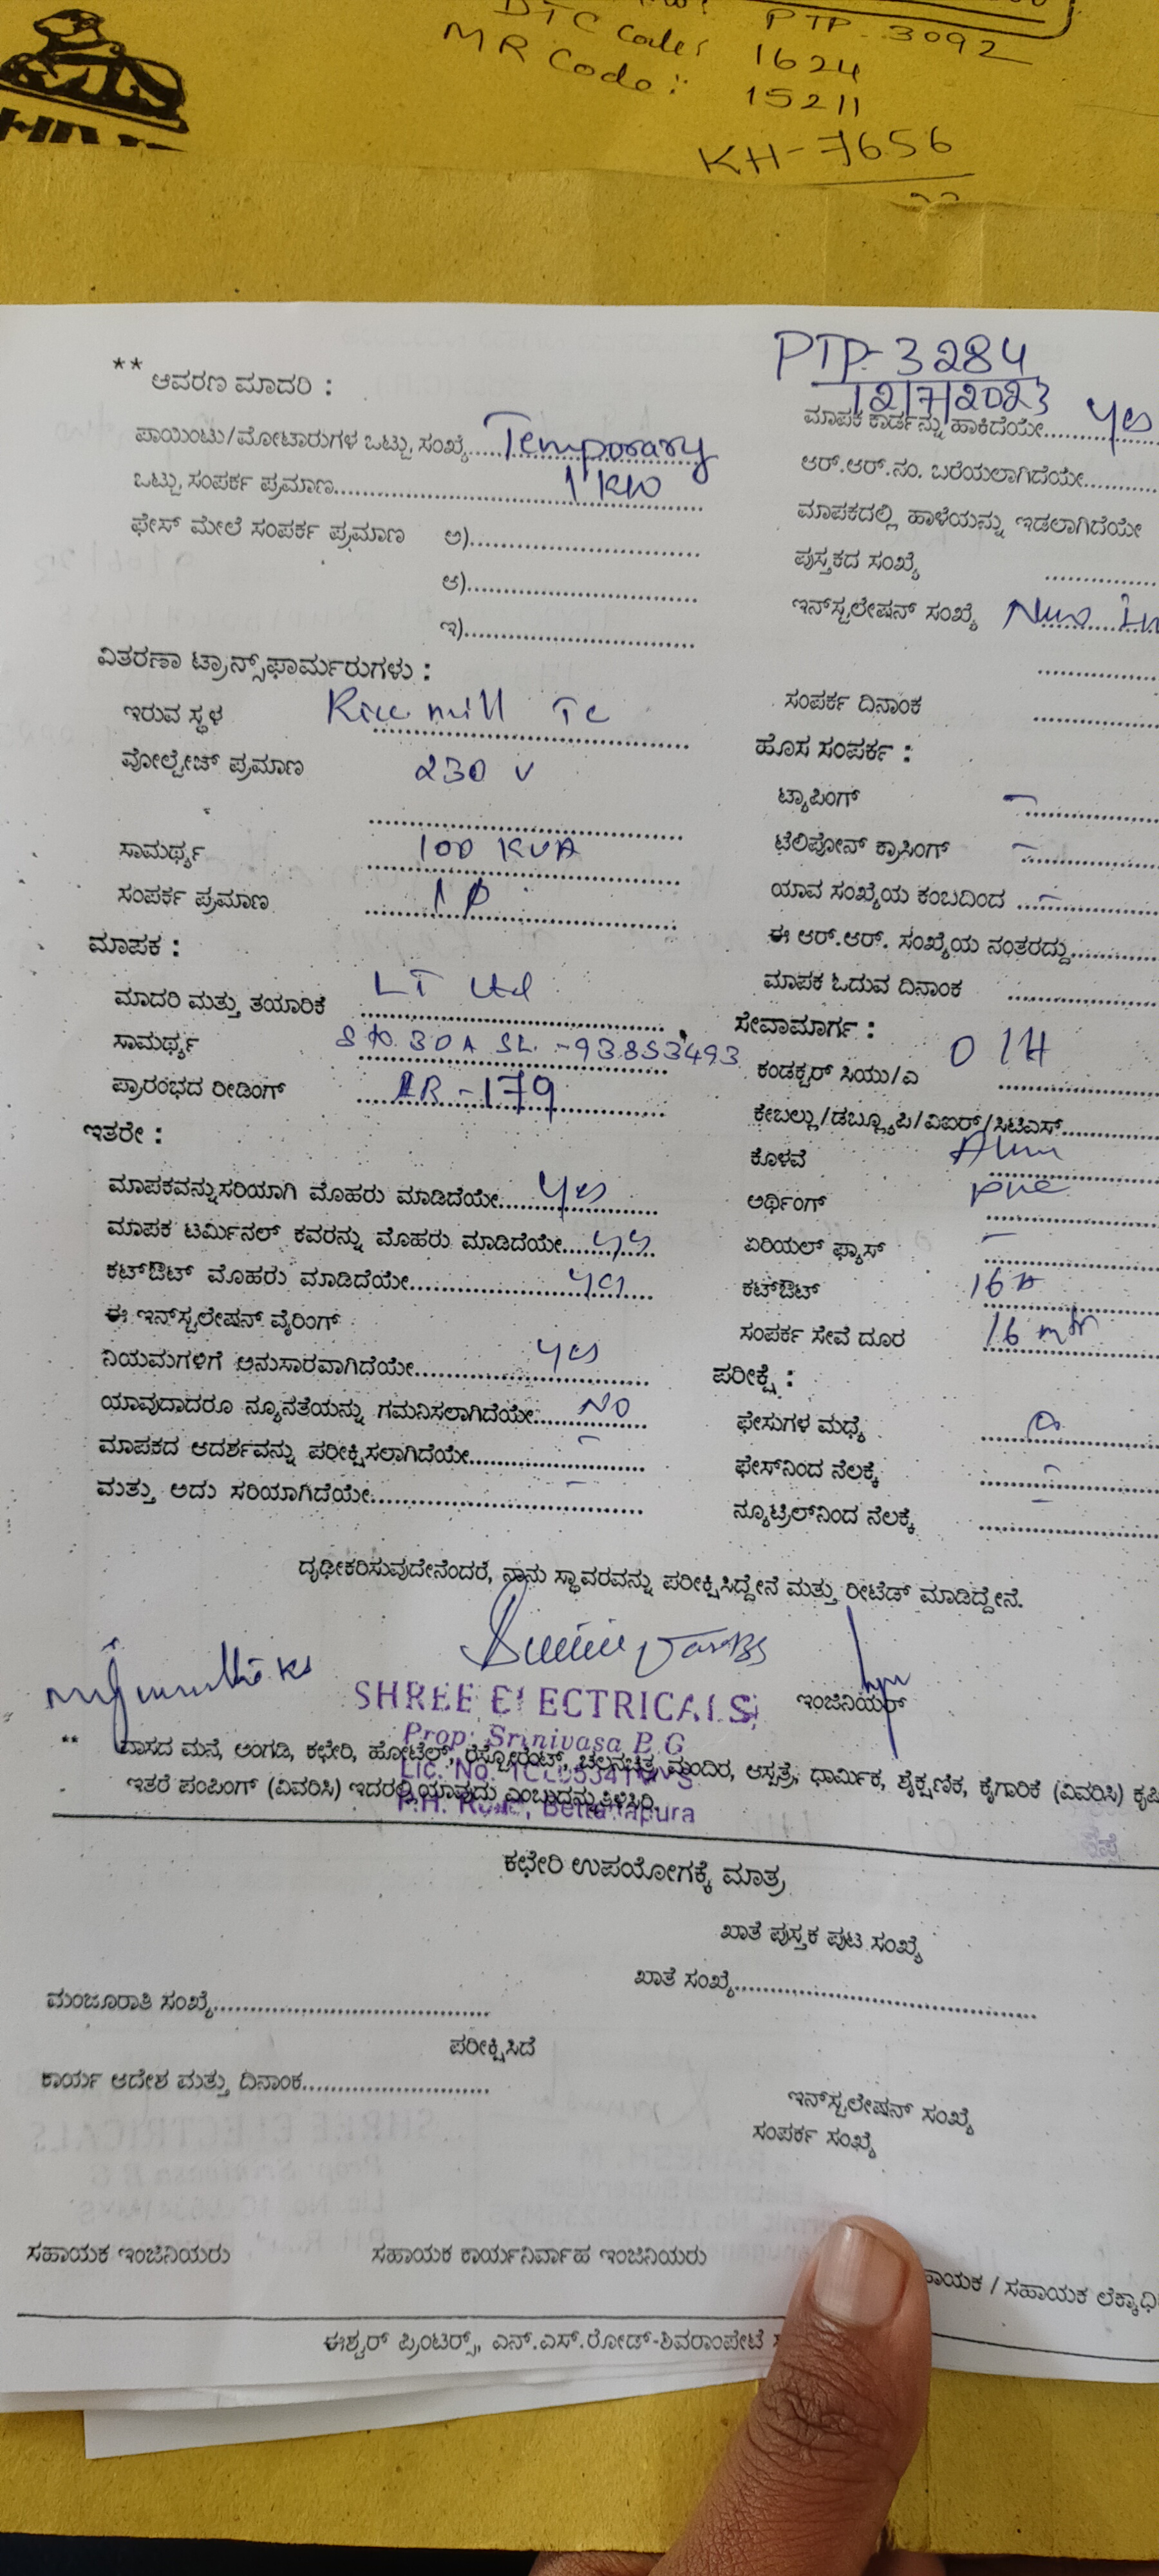 PTP-3092
DTC Code: 1624
MR Code: 15211
KH-7656
PTP-3284
12/7/2023
** ಆವರಣ ಮಾದರಿ :
ಪಾಯಿಂಟು/ಮೋಟಾರುಗಳ ಒಟ್ಟು ಸಂಖ್ಯೆ..... Temporary
ಒಟ್ಟು ಸಂಪರ್ಕ ಪ್ರಮಾಣ..... 1 KW
ಫೇಸ್ ಮೇಲೆ ಸಂಪರ್ಕ ಪ್ರಮಾಣ ಅ).....
ಆ).....
ಇ).....
ವಿತರಣಾ ಟ್ರಾನ್ಸ್‌ಫಾರ್ಮರುಗಳು :
ಇರುವ ಸ್ಥಳ Rice mill Tc
ವೋಲ್ಟೇಜ್ ಪ್ರಮಾಣ 230 V
ಸಾಮರ್ಥ್ಯ 100 KVA
ಸಂಪರ್ಕ ಪ್ರಮಾಣ
ಮಾಪಕ :
ಮಾದರಿ ಮತ್ತು ತಯಾರಿಕೆ LT Ltd
ಸಾಮರ್ಥ್ಯ 30A SL - 93853493
ಪ್ರಾರಂಭದ ರೀಡಿಂಗ್ - 179
ಇತರೇ :
ಮಾಪಕವನ್ನು ಸರಿಯಾಗಿ ಮೊಹರು ಮಾಡಿದೆಯೇ..... Yes
ಮಾಪಕ ಟರ್ಮಿನಲ್ ಕವರನ್ನು ಮೊಹರು ಮಾಡಿದೆಯೇ..... yes
ಕಟ್‌ಔಟ್ ಮೊಹರು ಮಾಡಿದೆಯೇ..... yes
ಈ ಇನ್‌ಸ್ಟಲೇಷನ್ ವೈರಿಂಗ್
ನಿಯಮಗಳಿಗೆ ಅನುಸಾರವಾಗಿದೆಯೇ..... yes
ಯಾವುದಾದರೂ ನ್ಯೂನತೆಯನ್ನು ಗಮನಿಸಲಾಗಿದೆಯೇ..... NO
ಮಾಪಕದ ಆದರ್ಶವನ್ನು ಪರೀಕ್ಷಿಸಲಾಗಿದೆಯೇ..... -
ಮತ್ತು ಅದು ಸರಿಯಾಗಿದೆಯೇ..... -
ಮಾಪಕ ಕಾರ್ಡನ್ನು ಹಾಕಿದೆಯೇ..... Yes
ಆರ್.ಆರ್.ನಂ. ಬರೆಯಲಾಗಿದೆಯೇ.....
ಮಾಪಕದಲ್ಲಿ ಹಾಳೆಯನ್ನು ಇಡಲಾಗಿದೆಯೇ
ಪುಸ್ತಕದ ಸಂಖ್ಯೆ
ಇನ್‌ಸ್ಟಲೇಷನ್ ಸಂಖ್ಯೆ
ಸಂಪರ್ಕ ದಿನಾಂಕ
ಹೊಸ ಸಂಪರ್ಕ :
ಟ್ಯಾಪಿಂಗ್ -
ಟೆಲಿಪೋನ್ ಕ್ರಾಸಿಂಗ್ -
ಯಾವ ಸಂಖ್ಯೆಯ ಕಂಬದಿಂದ ..... -
ಈ ಆರ್.ಆರ್. ಸಂಖ್ಯೆಯ ನಂತರದ್ದು.....
ಮಾಪಕ ಓದುವ ದಿನಾಂಕ
ಸೇವಾಮಾರ್ಗ : O/H
ಕಂಡಕ್ಟರ್ ಸಿಯು/ಎ
ಕೇಬಲ್ಲು/ಡಬ್ಲ್ಯೂಪಿ/ವಿಐಆರ್/ಸಿಟಿಎಸ್.....
ಕೊಳವೆ Alum
ಅರ್ಥಿಂಗ್ pvc
ಏರಿಯಲ್ ಫ್ಯಾಸ್ -
ಕಟ್‌ಔಟ್ 16 A
ಸಂಪರ್ಕ ಸೇವೆ ದೂರ 16 mtr
ಪರೀಕ್ಷೆ :
ಫೇಸುಗಳ ಮಧ್ಯೆ
ಫೇಸ್‌ನಿಂದ ನೆಲಕ್ಕೆ -
ನ್ಯೂಟ್ರಲ್‌ನಿಂದ ನೆಲಕ್ಕೆ -
ದೃಢೀಕರಿಸುವುದೇನೆಂದರೆ, ನಾನು ಸ್ಥಾವರವನ್ನು ಪರೀಕ್ಷಿಸಿದ್ದೇನೆ ಮತ್ತು ರೀಟೆಡ್ ಮಾಡಿದ್ದೇನೆ.
SHREE ELECTRICALS
Prop: Srinivasa B G
ಇಂಜಿನಿಯರ್
** ವಾಸದ ಮನೆ, ಅಂಗಡಿ, ಕಛೇರಿ, ಹೋಟೆಲ್, ರೆಸ್ಟೋರೆಂಟ್, ಚಲನಚಿತ್ರ ಮಂದಿರ, ಆಸ್ಪತ್ರೆ, ಧಾರ್ಮಿಕ, ಶೈಕ್ಷಣಿಕ, ಕೈಗಾರಿಕೆ (ವಿವರಿಸಿ)
ಇತರೆ ಪಂಪಿಂಗ್ (ವಿವರಿಸಿ) ಇದರಲ್ಲಿ ಯಾವುದು ಎಂಬುದನ್ನು ತಿಳಿಸಿರಿ
ಕಛೇರಿ ಉಪಯೋಗಕ್ಕೆ ಮಾತ್ರ
ಖಾತೆ ಪುಸ್ತಕ ಪುಟ ಸಂಖ್ಯೆ
ಖಾತೆ ಸಂಖ್ಯೆ.....
ಮಂಜೂರಾತಿ ಸಂಖ್ಯೆ.....
ಪರೀಕ್ಷಿಸಿದೆ
ಕಾರ್ಯ ಆದೇಶ ಮತ್ತು ದಿನಾಂಕ.....
ಇನ್‌ಸ್ಟಲೇಷನ್ ಸಂಖ್ಯೆ
ಸಂಪರ್ಕ ಸಂಖ್ಯೆ
ಸಹಾಯಕ ಇಂಜಿನಿಯರು ಸಹಾಯಕ ಕಾರ್ಯನಿರ್ವಾಹ ಇಂಜಿನಿಯರು / ಸಹಾಯಕ
ಈಶ್ವರ್ ಪ್ರಿಂಟರ್ಸ್, ಎನ್.ಎಸ್.ರೋಡ್-ಶಿವರಾಂಪೇಟೆ